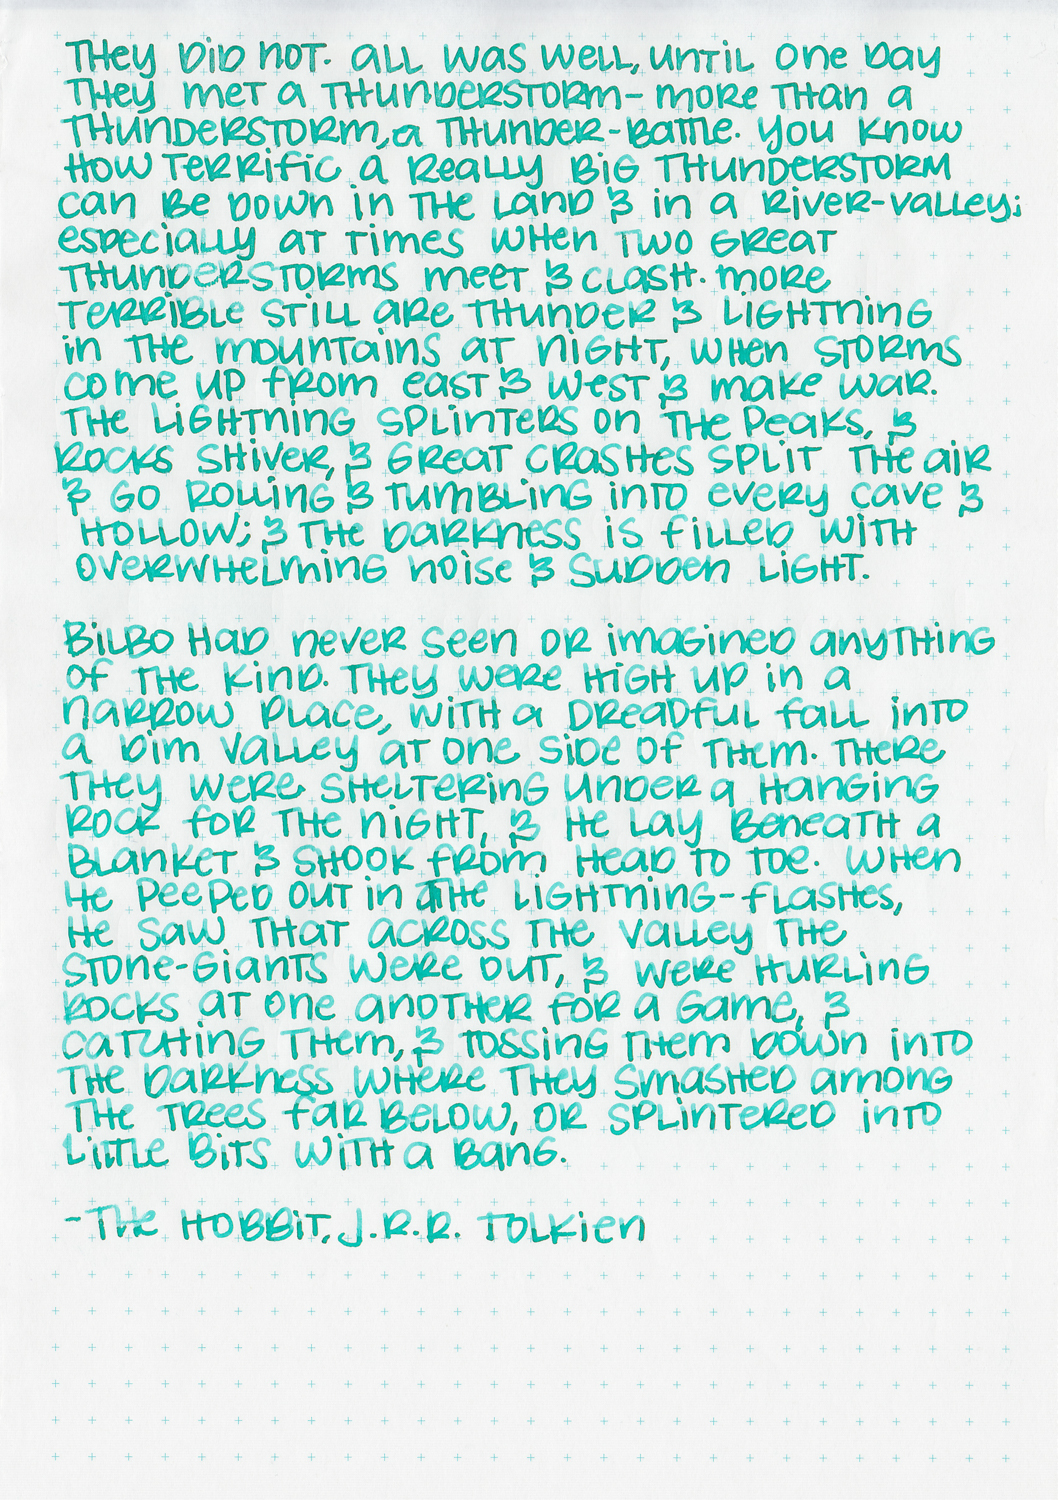 They did not. All was well, until one day
they met a thunderstorm- more than a
thunderstorm, a thunder-battle. You know
how terrific a really big thunderstorm
can be down in the land & in a river-valley;
especially at times when two great
thunderstorms meet & clash. More
terrible still are thunder & lightning
in the mountains at night, when storms
come up from east & west & make war.
The lightning splinters on the peaks, &
rocks shiver, & great crashes split the air
& go rolling & tumbling into every cave &
hollow; & the darkness is filled with
overwhelming noise & sudden light.
Bilbo had never seen or imagined anything
of the kind. They were high up in a
narrow place, with a dreadful fall into
a dim valley at one side of them. There
they were sheltering under a hanging
rock for the night, & he lay beneath a
blanket & shook from head to toe. When
he peeped out in the lightning-flashes,
he saw that across the valley the
stone-giants were out, & were hurling
rocks at one another for a game, &
catching them, & tossing them down into
the darkness where they smashed among
the trees far below, or splintered into
little bits with a bang.
-The Hobbit, J.R.R. Tolkien